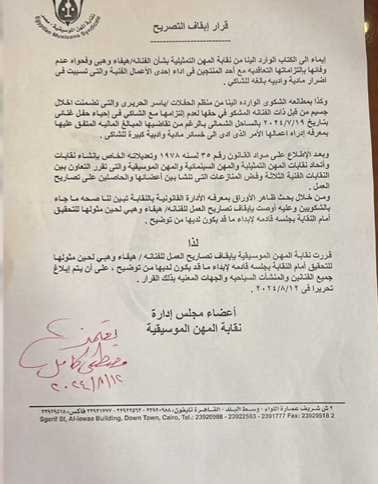 نقابة المهن الموسيقية
Egyptian Musicians Syndicate
قرار إيقاف التصريح
إيماء الى الكتاب الوارد الينا من نقابة المهن التمثيلية بشأن الفنانه/هيفاء وهبى وفحواه عدم
وفائها بإلتزاماتها التعاقديه مع أحد المنتجين فى اداء إحدى الأعمال الفنية والتى تسببت فى
اضرار مادية وادبيه بالغه للشاكى .
وكذا بمطالعه الشكوى الوارده الينا من منظم الحفلات /ياسر الحريرى والتى تضمنت اخلال
جسيم من قبل ذات الفنانه المشكو فى حقها لعدم إلتزامها مع الشاكى فى إحياء حفل غنائى
بتاريخ ٢٠٢٤/٧/١٩ بالساحل الشمالى بالرغم من تقاضيها المبالغ الماليه المتفق عليها
بمعرفه إدراه اعمالها الأمر الذى ادى الى خسائر مادية وادبية كبيرة للشاكى .
وبعد الإطلاع على مواد القانون رقم ٣٥ لسنه ١٩٧٨ وتعديلاته الخاص بإنشاء نقابات
واتحاد نقابات المهن التمثيلية والمهن السينمائية والمهن الموسيقية والتى تقرر التعاون بين
النقابات الفنية الثلاثة وفض المنازعات التى تنشأ بين أعضائها والحاصلين على تصاريح
العمل .
ومن خلال بحث ظاهر الأوراق بمعرفه الأدارة القانونية بالنقابة تبين لنا صحه ما جاء
بالشكويين وعليه أوصت بإيقاف تصاريح العمل للفنانه/ هيفاء وهبي لحين مثولها للتحقيق
أمام النقابة بجلسه قادمه لإبداء ما قد يكون لديها من توضيح .
لذا
قررت نقابة المهن الموسيقية بإيقاف تصاريح العمل للفنانه / هيفاء وهبي لحين مثولها
للتحقيق أمام النقابة بجلسه قادمه لإبداء ما قد يكون لديها من توضيح ، على أن يتم إبلاغ
جميع الفنانين والمنشأت السياحيه والجهات المعنيه بذلك القرار .
تحريرا فى ٢٠٢٤/٨/١٢
أعضاء مجلس إدارة
نقابة المهن الموسيقية
يعتمد
مصطفى كامل
٢٠٢٤/٨/١٢
٢ ش شريف عمارة اللواء - وسط البلد - القاهرة تليفون: ٢٣٩٢٠٩٨٨ - ٢٣٩٢٢٥٩٣ - ٢٣٩٣١٧٧٧ فاكس: ٢٣٩٢٩٥١٨
Sgerif St, Al-lewaa Building, Down Town, Cairo, Tel.: 23920988 - 23922593 - 2391777 Fax: 23929518 2